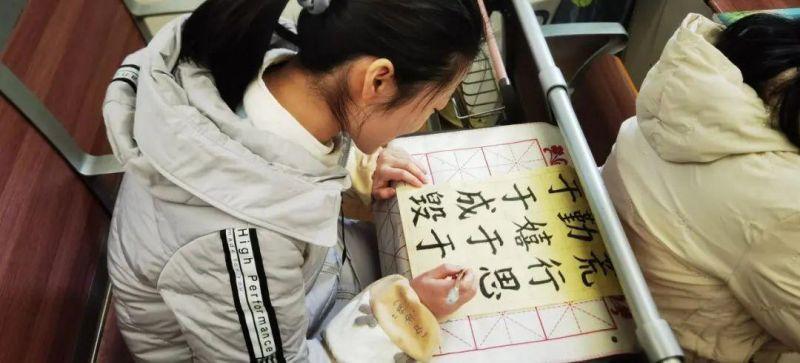 于勤荒
于嬉行
成于思
毁于
High Performance